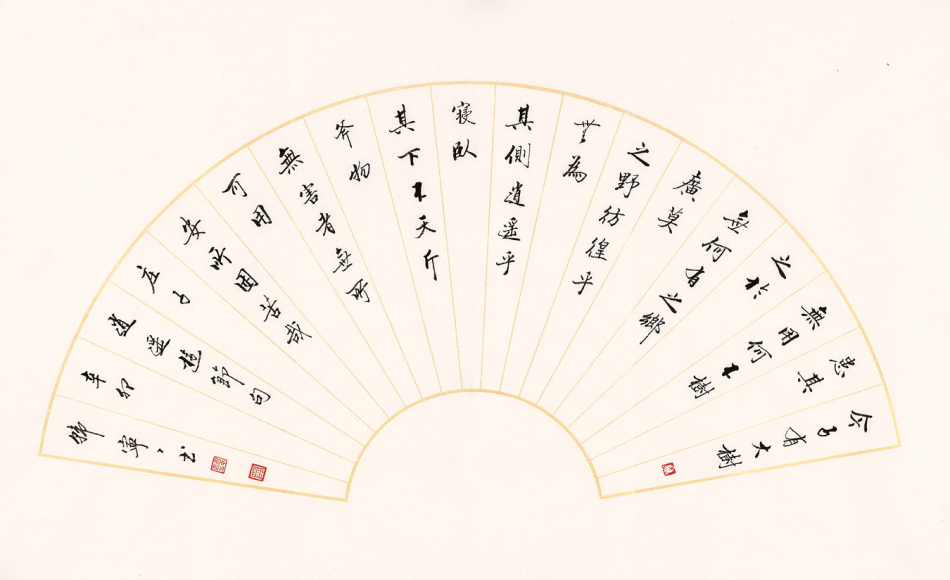 今子有大樹
患其
無用何不樹
之於
無何有之鄉
廣莫
之野彷徨乎
無為
其側逍遥乎
寢臥
其下不夭斤
斧物
無害者無所
可用
安所困苦哉
庄子
逍遥遊節句
辛卯
寧〻书